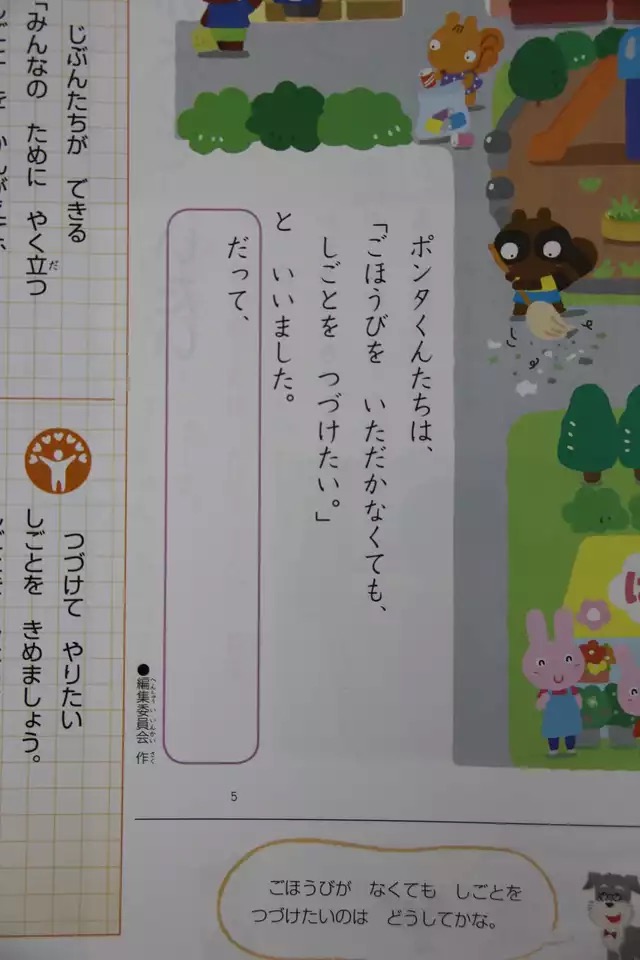 ポンタくんたちは、
「ごほうびを　いただかなくても、
しごとを　つづけたい。」
と　いいました。
だって、
●編集委員会　作
へんしゅういいんかい　さく
5
じぶんたちが　できる
「みんなの　ために　やく立つ
だ
つづけて　やりたい
しごとを　きめましょう。
ごほうびが　なくても　しごとを
つづけたいのは　どうしてかな。